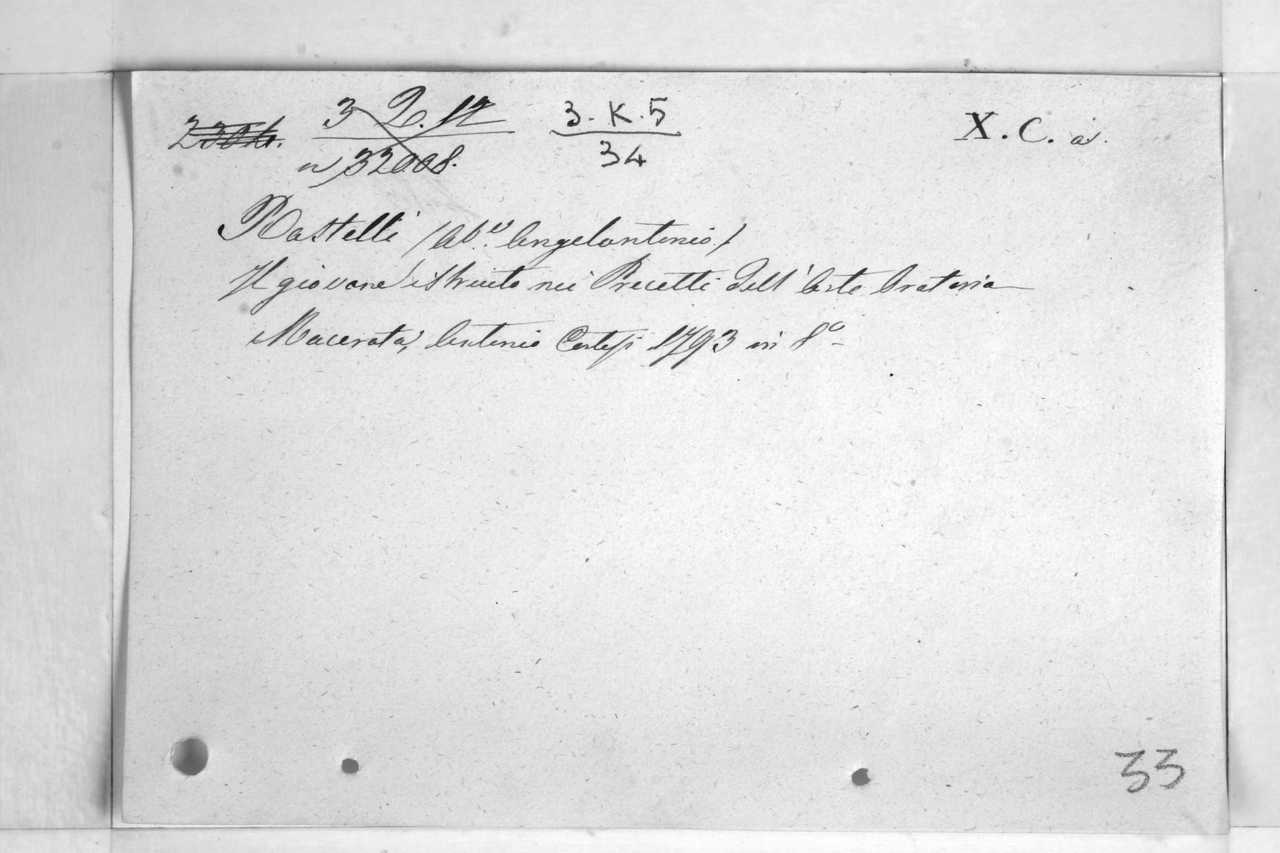 3 2. 17 3. K. 5 X. C. a.
n 32008. 34
Rastelli (Ab.e Angelantonio)
Il giovane istruito nei Precetti dell'Arte Oratoria
Macerata, Antonio Cortesi 1793 in 8°
33